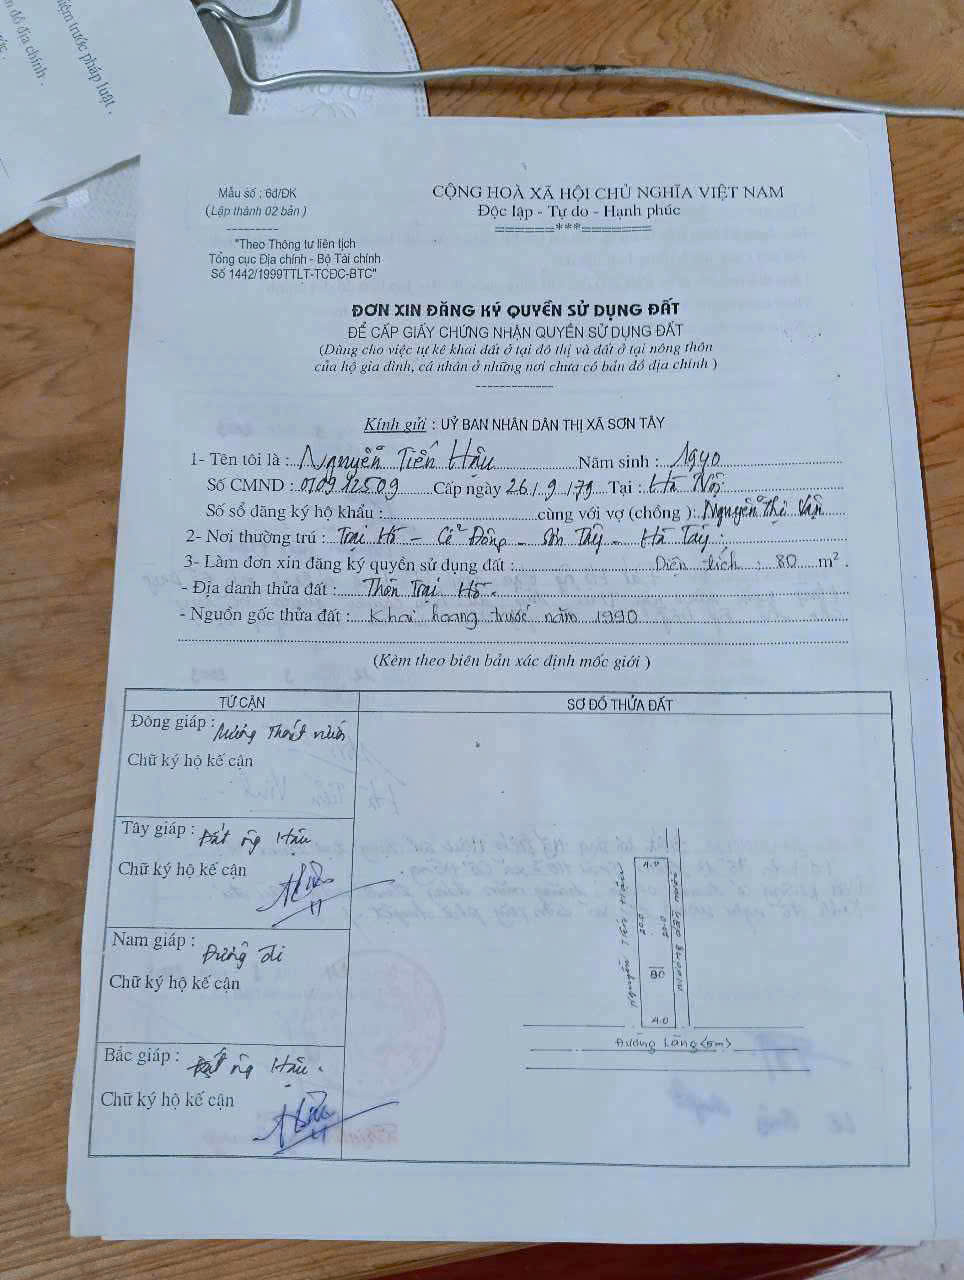 kiệm trước pháp luật.
đồ địa chính.
Mẫu số : 6d/ĐK
(Lập thành 02 bản )
"Theo Thông tư liên tịch
Tổng cục Địa chính - Bộ Tài chính
Số 1442/1999TTLT-TCĐC-BTC"
CỘNG HOÀ XÃ HỘI CHỦ NGHĨA VIỆT NAM
Độc lập - Tự do - Hạnh phúc
=======***=======
ĐƠN XIN ĐĂNG KÝ QUYỀN SỬ DỤNG ĐẤT
ĐỂ CẤP GIẤY CHỨNG NHẬN QUYỀN SỬ DỤNG ĐẤT
(Dùng cho việc tự kê khai đất ở tại đô thị và đất ở tại nông thôn
của hộ gia đình, cá nhân ở những nơi chưa có bản đồ địa chính )
Kính gửi : UỶ BAN NHÂN DÂN THỊ XÃ SƠN TÂY
1- Tên tôi là : Nguyễn Tiến Hậu Năm sinh : 1940
Số CMND : 010912509 Cấp ngày 26/9/79 Tại : Hà Nội
Số sổ đăng ký hộ khẩu : cùng với vợ (chồng ) : Nguyễn Thị Vận
2- Nơi thường trú : Trại Hồ - Cổ Đông - Sơn Tây - Hà Tây
3- Làm đơn xin đăng ký quyền sử dụng đất : Diện tích : 80 m² .
- Địa danh thửa đất : Thôn Trại Hồ.
- Nguồn gốc thửa đất : Khai hoang trước năm 1990
(Kèm theo biên bản xác định mốc giới )
TỨ CẬN
SƠ ĐỒ THỬA ĐẤT
Đông giáp : Mương thoát nước
Chữ ký hộ kế cận
Tây giáp : Đất ông Hậu
Chữ ký hộ kế cận
Nam giáp : Đường đi
Chữ ký hộ kế cận
Bắc giáp : Đất ông Hậu.
Chữ ký hộ kế cận
4.0
Nguyễn Tiến Hậu
20.0
20.0
Mương dẫn nước
80
4.0
Đường Làng (5m)